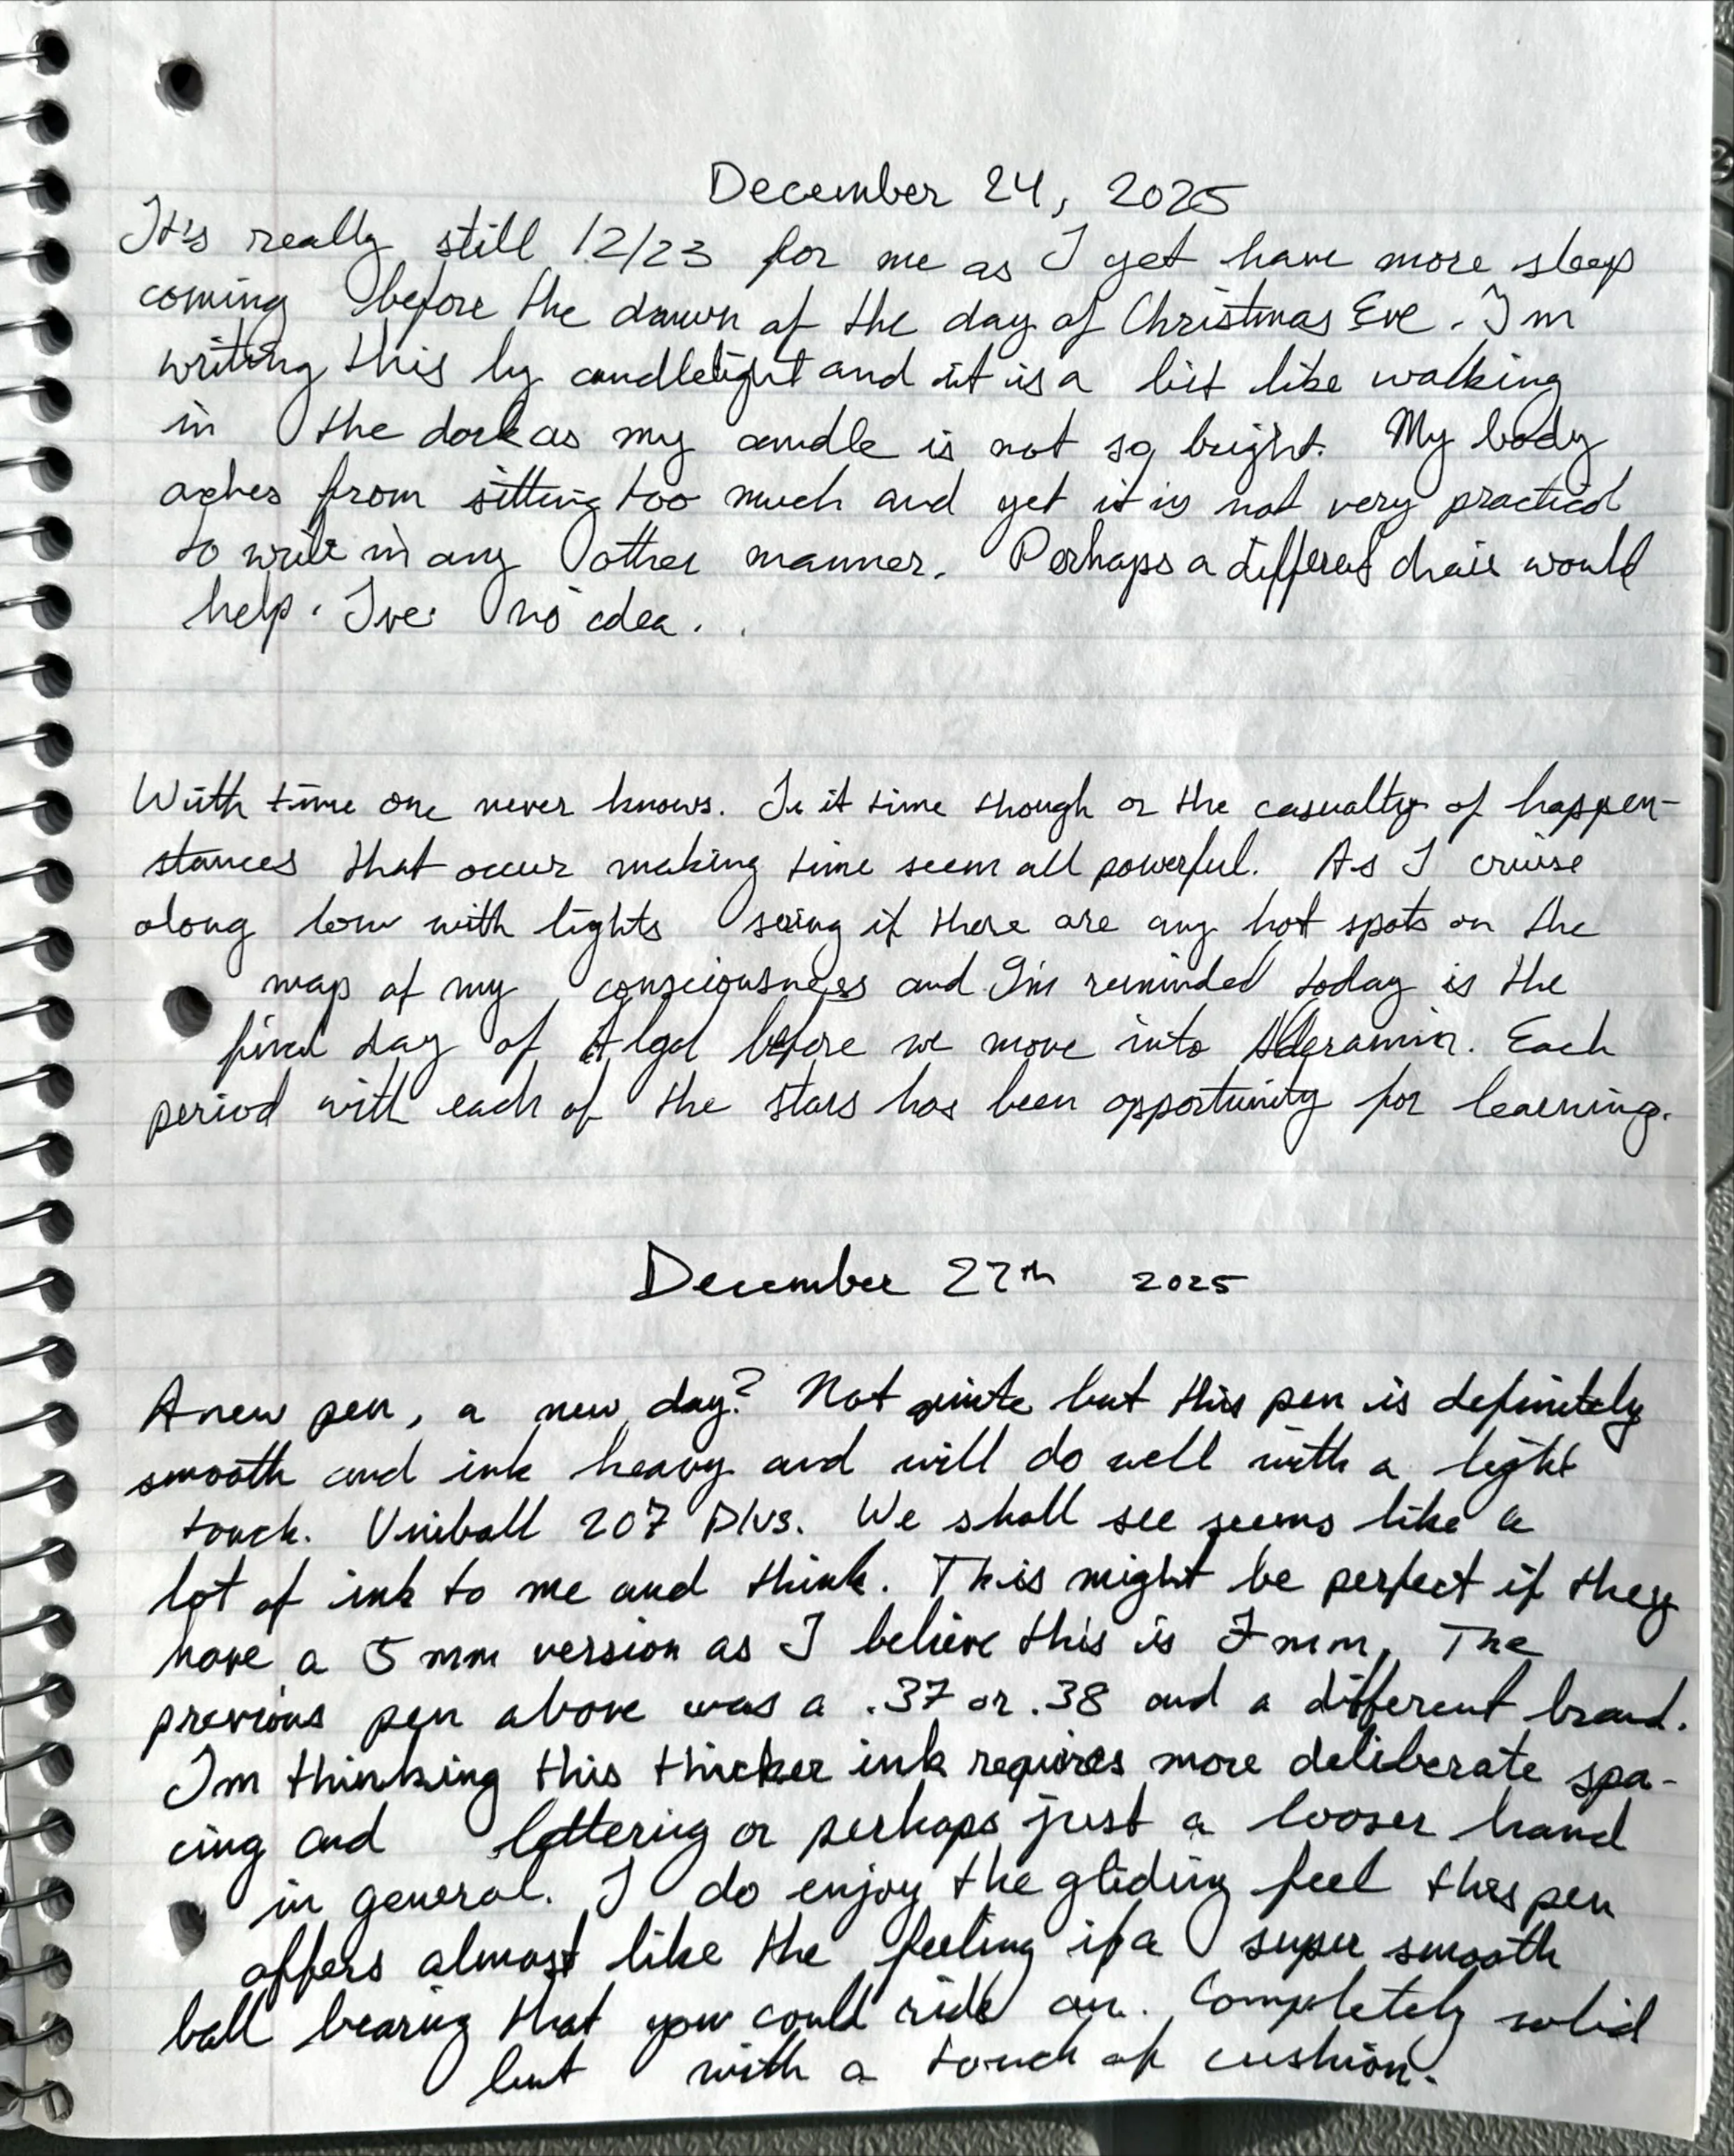 December 24, 2025
It's really still 12/23 for me as I yet have more sleep
coming before the dawn of the day of Christmas Eve. I'm
writing this by candlelight and it is a bit like walking
in the dark as my candle is not so bright. My body
aches from sitting too much and yet it is not very practical
to write in any other manner. Perhaps a different chair would
help. I've no idea.
With time one never knows. Is it time though or the casualty of happen-
stances that occur making time seem all powerful. As I cruise
along low with lights seeing if there are any hot spots on the
map of my consciousness and I'm reminded today is the
final day of Algol before we move into Alderamin. Each
period with each of the stars has been opportunity for learning.
December 27th 2025
A new pen, a new day? Not quite but this pen is definitely
smooth and ink heavy and will do well with a light
touch. Uniball 207 Plus. We shall see seems like a
lot of ink to me and think. This might be perfect if they
have a 5 mm version as I believe this is 7mm. The
previous pen above was a .37 or .38 and a different brand.
I'm thinking this thicker ink requires more deliberate spa-
cing and lettering or perhaps just a looser hand
in general. I do enjoy the gliding feel this pen
offers almost like the feeling if a super smooth
ball bearing that you could ride on. Completely solid
but with a touch of cushion.